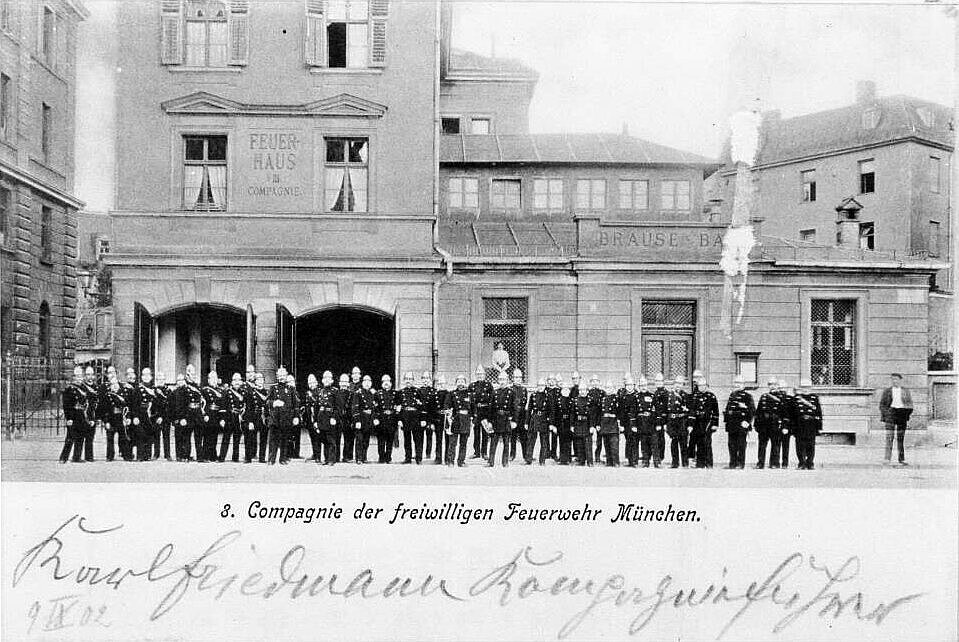 FEUER-
HAUS
III
COMPAGNIE.
BRAUSE-BA
3. Compagnie der freiwilligen Feuerwehr München.
Karl Friedmann Kompagnieführer
9 IX 02